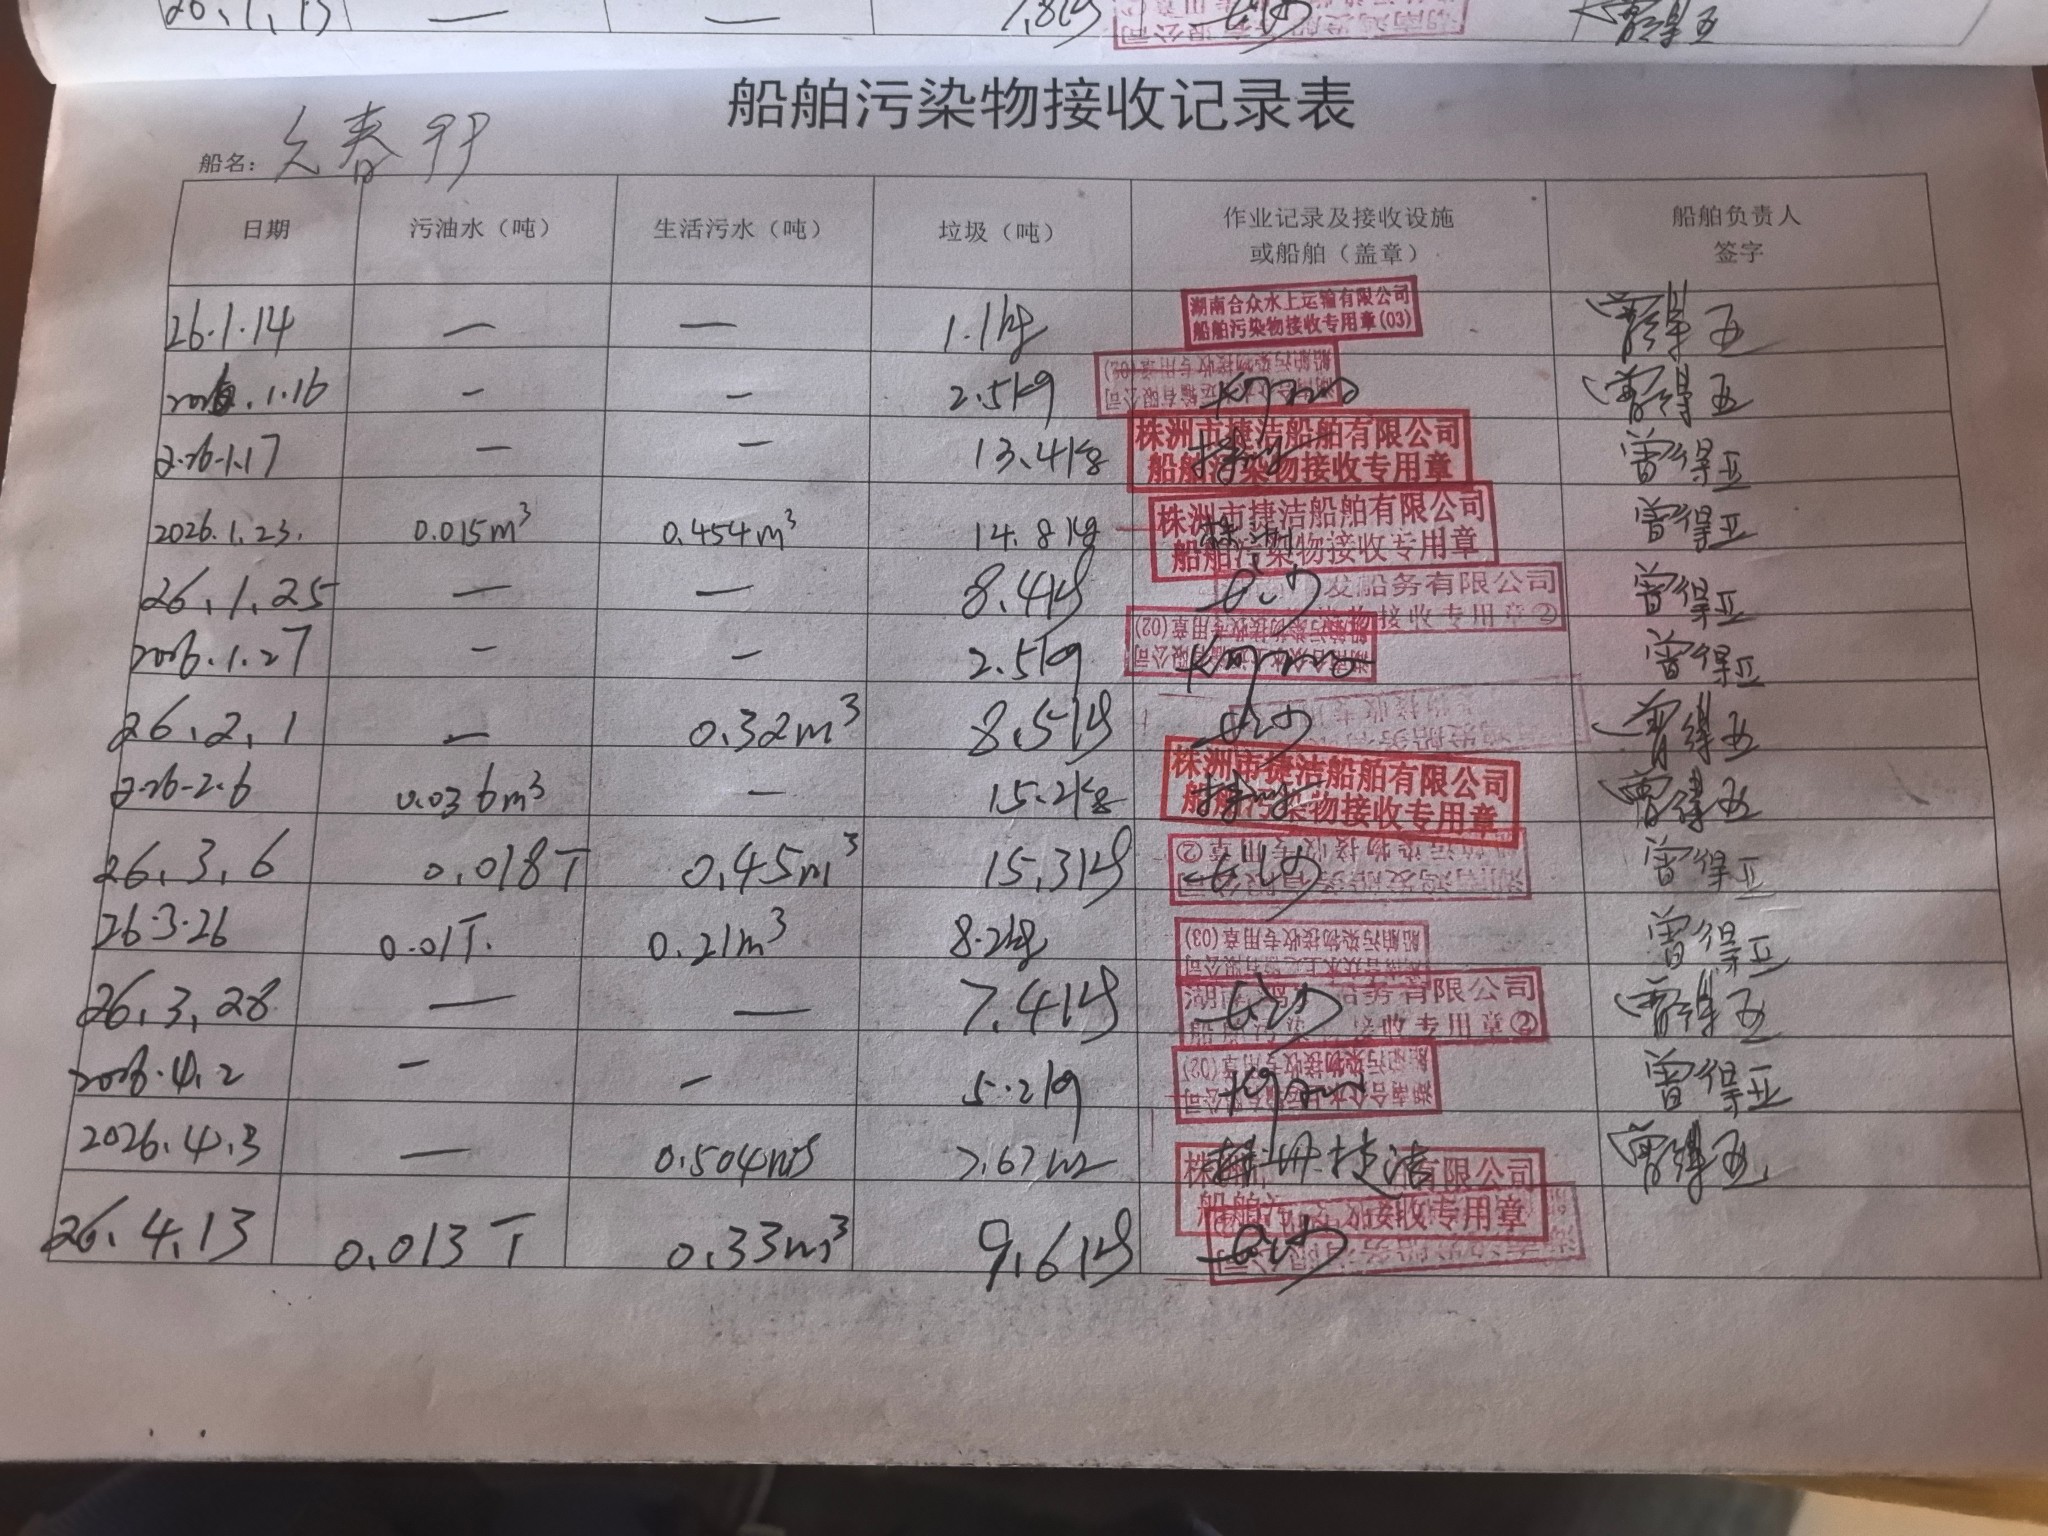 26.1.13 — — 7.8kg
船舶污染物接收记录表
船名: 长春99
日期 污油水（吨） 生活污水（吨） 垃圾（吨） 作业记录及接收设施 船舶负责人
或船舶（盖章） 签字
26.1.14 — — 1.1kg 湖南合众水上运输有限公司 曾得亚
船舶污染物接收专用章(03)
2026.1.16 — — 2.5kg 曾得亚
2026.1.17 — — 13.4kg 株洲市捷洁船舶有限公司 曾得亚
船舶污染物接收专用章
2026.1.23. 0.015m³ 0.454m³ 14.8kg 株洲市捷洁船舶有限公司 曾得亚
船舶污染物接收专用章
26.1.25 — — 8.4kg 发船务有限公司 曾得亚
接收专用章②
2026.1.27 — — 2.5kg 船舶污染物接收专用章(02) 曾得亚
26.2.1 — 0.32m³ 8.5kg 曾得亚
2026-2.6 0.036m³ — 15.2kg 株洲市捷洁船舶有限公司 曾得亚
船舶污染物接收专用章
26.3.6 0.018T 0.45m³ 15.3kg 曾得亚
26.3.26 0.01T. 0.21m³ 8.2kg 船舶污染物接收专用章(03) 曾得亚
26.3.28 — — 7.4kg 船务有限公司 曾得亚
接收专用章②
2026.4.2 — — 5.2kg 船舶污染物接收专用章(02) 曾得亚
2026.4.3 — 0.504m³ 株洲捷洁 有限公司 曾得亚
船舶 接收专用章
26.4.13 0.013T 0.33m³ 9.6kg